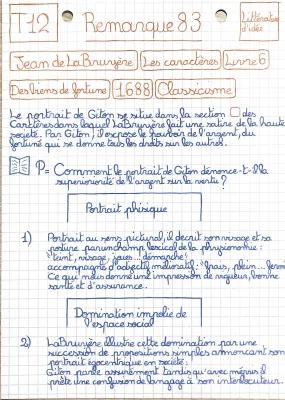 T12
Remarque 83
Littérature d'idée
Jean de La Bruyère
Les caractères
Livre 6
Des biens de fortune
1688
Classicisme
Le portrait de Giton se situe dans la section 6 des
Caractères dans laquel La Bruyère fait une satire de la haute
société. Par Giton, il expose le pouvoir de l'argent, du
fortuné qui se donne tous les droits sur les autres.
P= Comment le portrait de Giton dénonce-t-il la
superiorité de l'argent sur la vertu ?
Portrait phisique
1) Portrait au sens pictural, il décrit son visage et sa
posture par un champ lexical de la physionomie :
"teint, visage, joues... démarche"
accompagné d'adjectif mélioratif : "frais, plein... ferme
Ce qui nous donne une impression de vigueur, bonne
santé et d'assurance.
Domination implie de
l'espace social
2) La Bruyère illustre cette domination par une
succession de propositions simples annoncant son
portrait égocentrique en société :
Giton parle assurément tandis qu'avec mépris il
prête une confusion de langage à son interlocuteur.